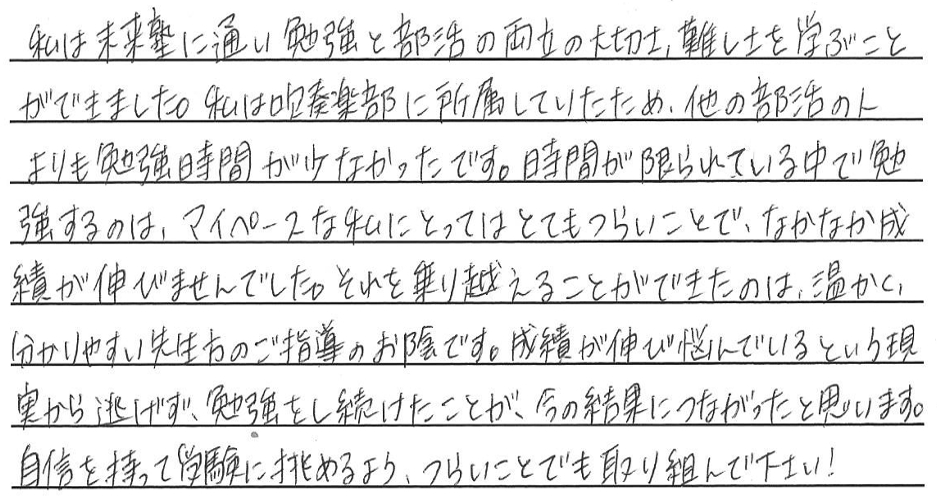 私は未来塾に通い勉強と部活の両立の大切さ,難しさを学ぶこと
ができました。私は吹奏楽部に所属していたため、他の部活の人
よりも勉強時間が少なかったです。時間が限られている中で勉
強するのは、マイペースな私にとってはとてもつらいことで、なかなか成
績が伸びませんでした。それを乗り越えることができたのは、温かく、
分かりやすい先生方のご指導のお陰です。成績が伸び悩んでいるという現
実から逃げず、勉強をし続けたことが、今の結果につながったと思います。
自信を持って受験に挑めるよう、つらいことでも取り組んで下さい!